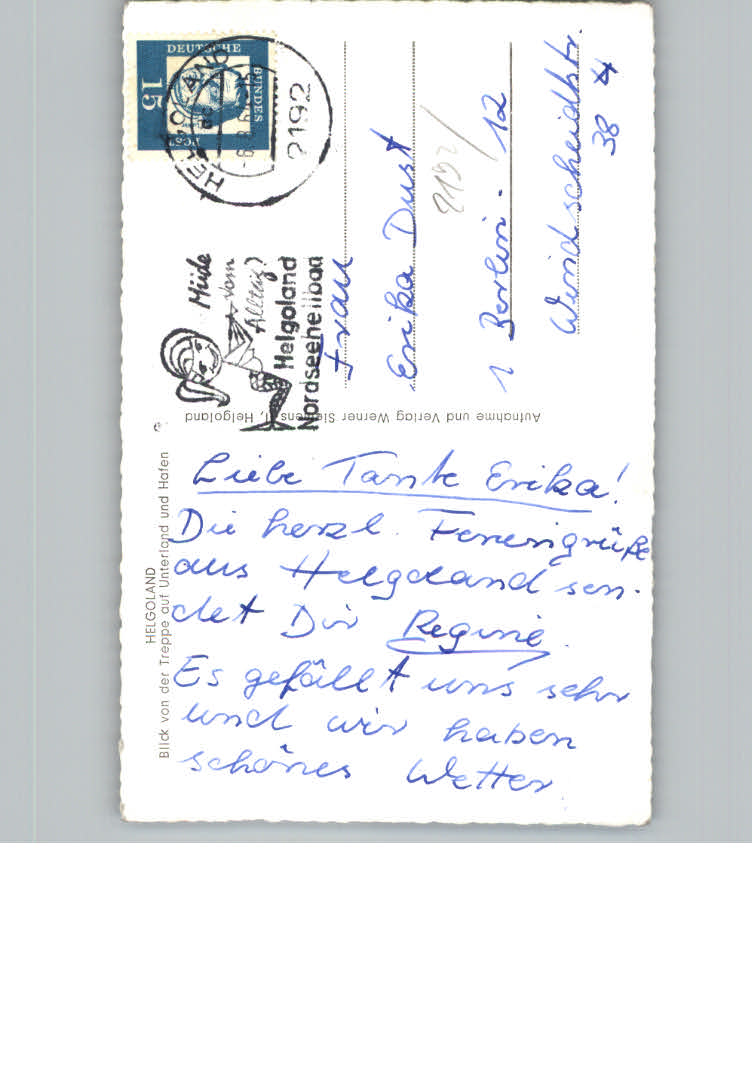 HELGOLAND
Blick von der Treppe auf Unterland und Hafen
Liebe Tante Erika!
Die herzl. Feriengrüße
aus Helgoland sen-
det Dir Regine.
Es gefällt uns sehr
und wir haben
schönes Wetter
Aufnahme und Verlag Werner Siemens jr., Helgoland
DEUTSCHE
BUNDES
POST
15
HELGOLAND
2192
Müde
vom
Alltag?
Helgoland
Nordseeheilbad
Frau
Erika Dust
2192/
1 Berlin-12
Windscheidstr.
38